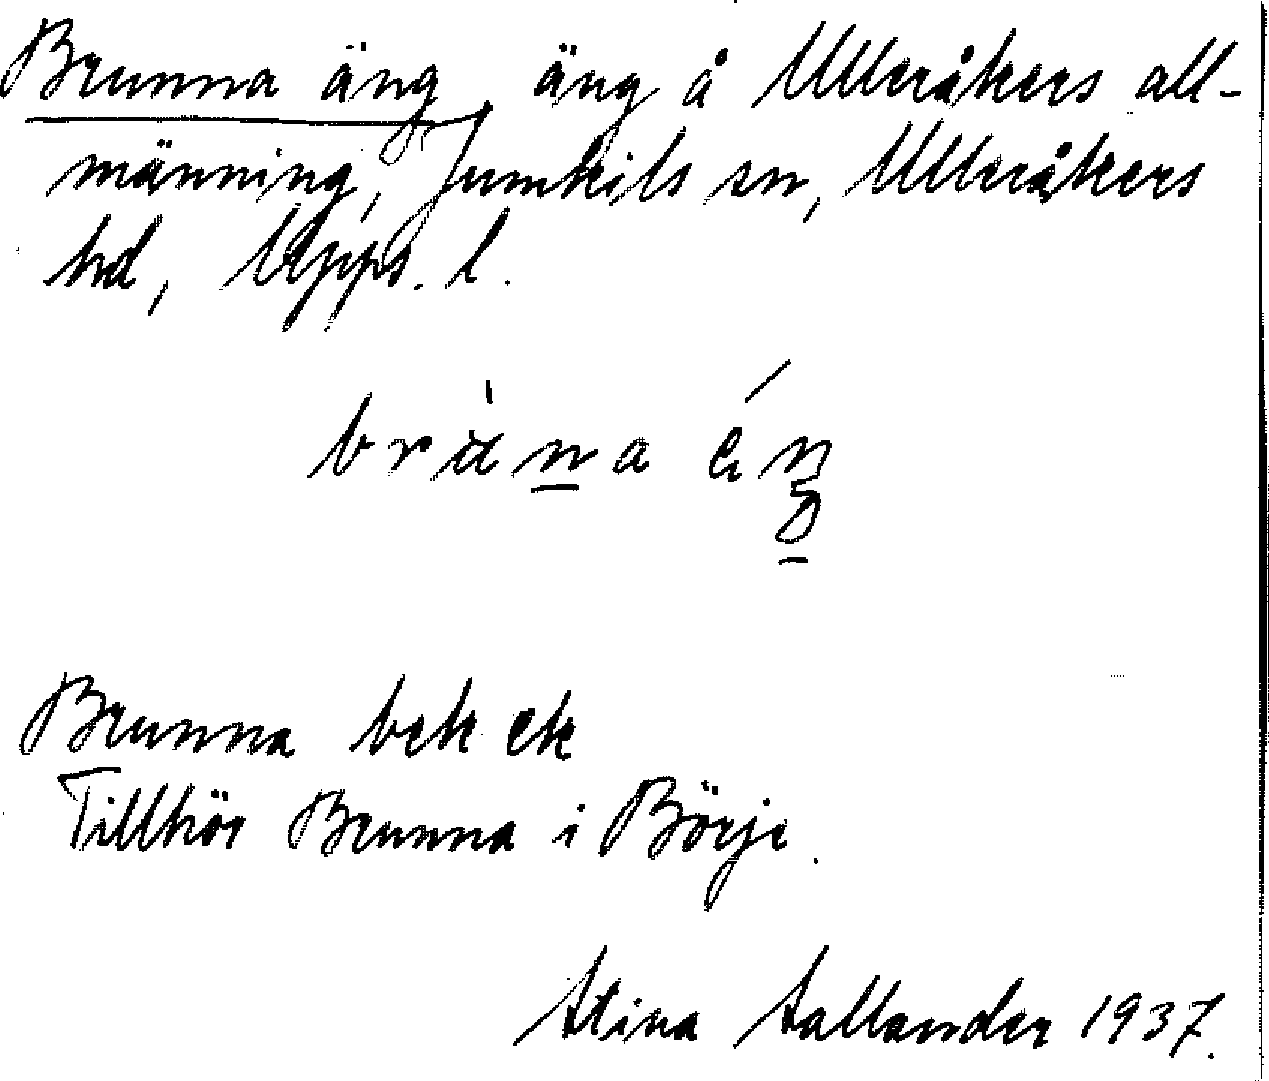 Brunna äng, äng å Ulleråkers all-
männing, Jumkils sn, Ulleråkers
hd, Upps. l.
brùna éŋ
Brunna bek ek
Tillhör Brunna i Börje.
Stina Sallander 1937.